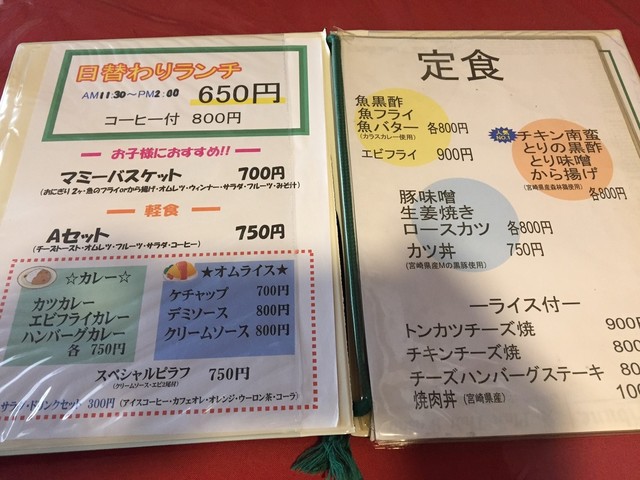 日替わりランチ
AM11:30～PM2:00 650円
コーヒー付 800円
お子様におすすめ!!
マミーバスケット 700円
(おにぎり2ヶ・魚のフライor から揚げ・オムレツ・ウィンナー・サラダ・フルーツ・みそ汁)
軽食
Aセット 750円
(チーストースト・オムレツ・フルーツ・サラダ・コーヒー)
☆カレー☆
カツカレー
エビフライカレー
ハンバーグカレー
各 750円
★オムライス★
ケチャップ 700円
デミソース 800円
クリームソース 800円
スペシャルピラフ 750円
(クリームソース・エビ2尾付)
サラダ・ドリンクセット 300円 (アイスコーヒー・カフェオレ・オレンジ・ウーロン茶・コーラ)
定食
魚黒酢
魚フライ
魚バター 各800円
(カラスカレー使用)
エビフライ 900円
チキン南蛮
とりの黒酢
とり味噌
から揚げ
(宮崎県産森林鶏使用)
各800円
豚味噌
生姜焼き
ロースカツ 各800円
カツ丼 750円
(宮崎県産Mの黒豚使用)
―ライス付―
トンカツチーズ焼 900円
チキンチーズ焼 800
チーズハンバーグステーキ 80
焼肉丼 (宮崎県産) 100